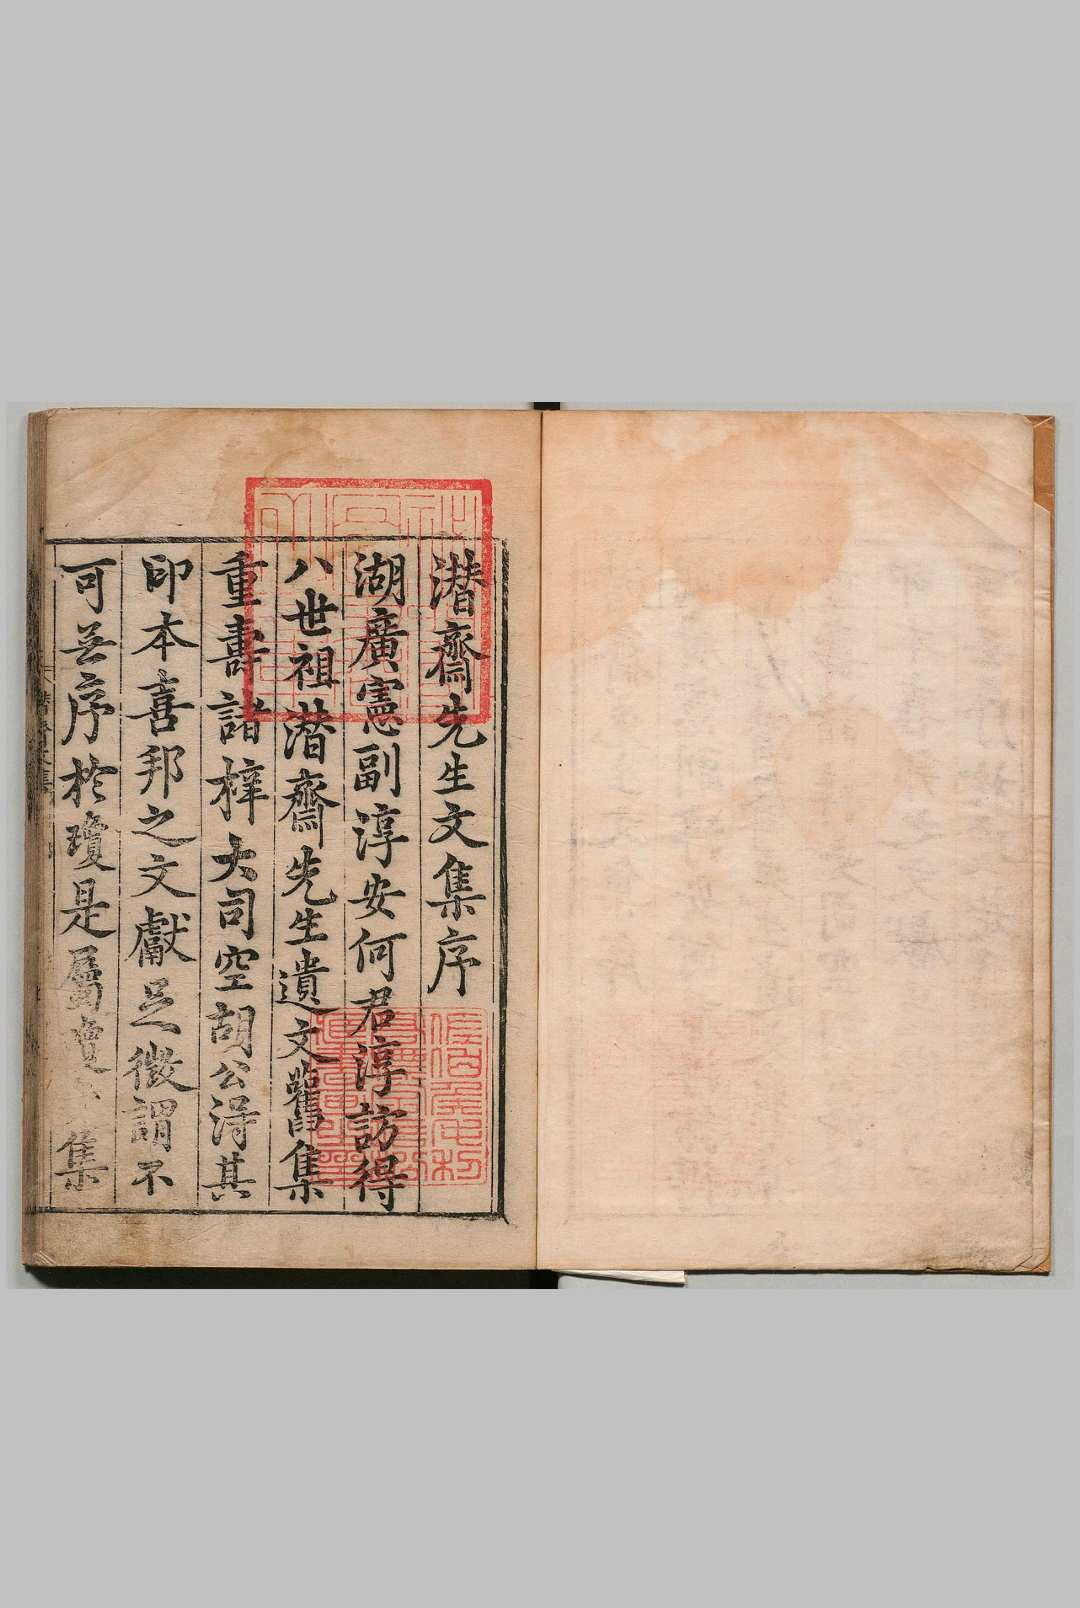 潛齋先生文集序
湖廣憲副淳安何君淳訪得
八世祖潛齋先生遺文舊集
重壽諸梓大司空胡公淂其
印本喜邦之文獻足徵謂不
可无序於瓊是屬瓊集